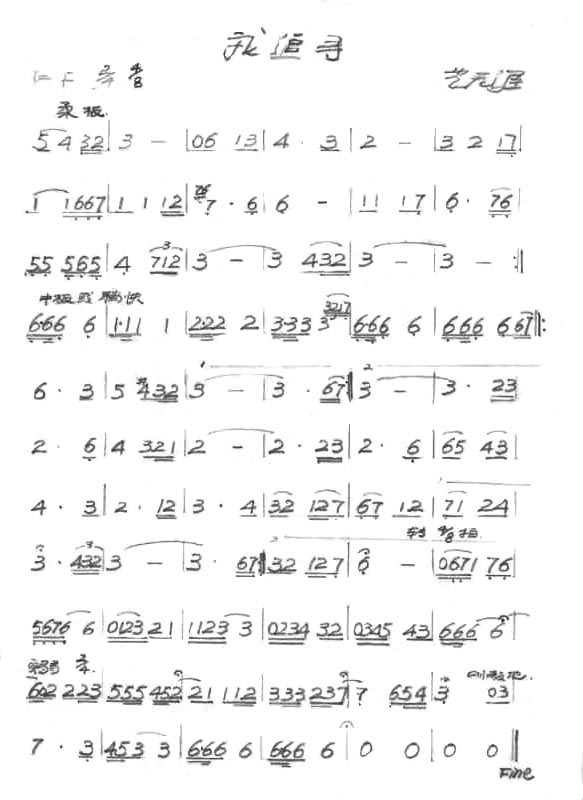 我追寻
1=F 2/4 4/8
柔板.
5 4 32 | 3 — | 06 13 | 4 · 3 | 2 — | 3 2 17 |
1 1667 | 1 1 12 | 76 7 · 6 | 6 — | 11 17 | 6 · 76 |
55 565 | 4 712 | 3 — | 3 432 | 3 — | 3 — :||
中板或稍快
6·66 6 | 1·11 1 | 2·22 2 | 3·33 3 3217 | 6·66 6 | 6·66 667 ||:
6 · 3 | 5 432 | 3 — | 3 · 67 :|| 3 — | 3 · 23
2 · 6 | 4 321 | 2 — | 2 · 23 | 2 · 6 | 65 43 |
4 · 3 | 2 · 12 | 3 · 4 | 32 127 | 67 12 | 71 24
转 4/8 拍
3 · 432 | 3 — | 3 · 67 :|| 32 127 | 6 — | 0671 76 |
5676 6 | 0123 21 | 1123 3 | 0234 32 | 0345 43 | 666 6
602 223 | 555 452 | 21 112 | 333 237 | 7 654 | 3 03 |
7 · 3 | 453 3 | 666 6 | 666 6 | 0 0 | 0 0 ||
Fine